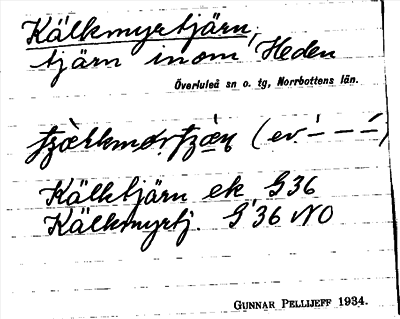 Kälkmyrtjärn,
tjärn inom Heden
Överluleå sn o. tg, Norrbottens län.
(ev.
Kälktjärn ek G36
Kälkmyrtj. G36 NO
GUNNAR PELLIJEFF 1934.